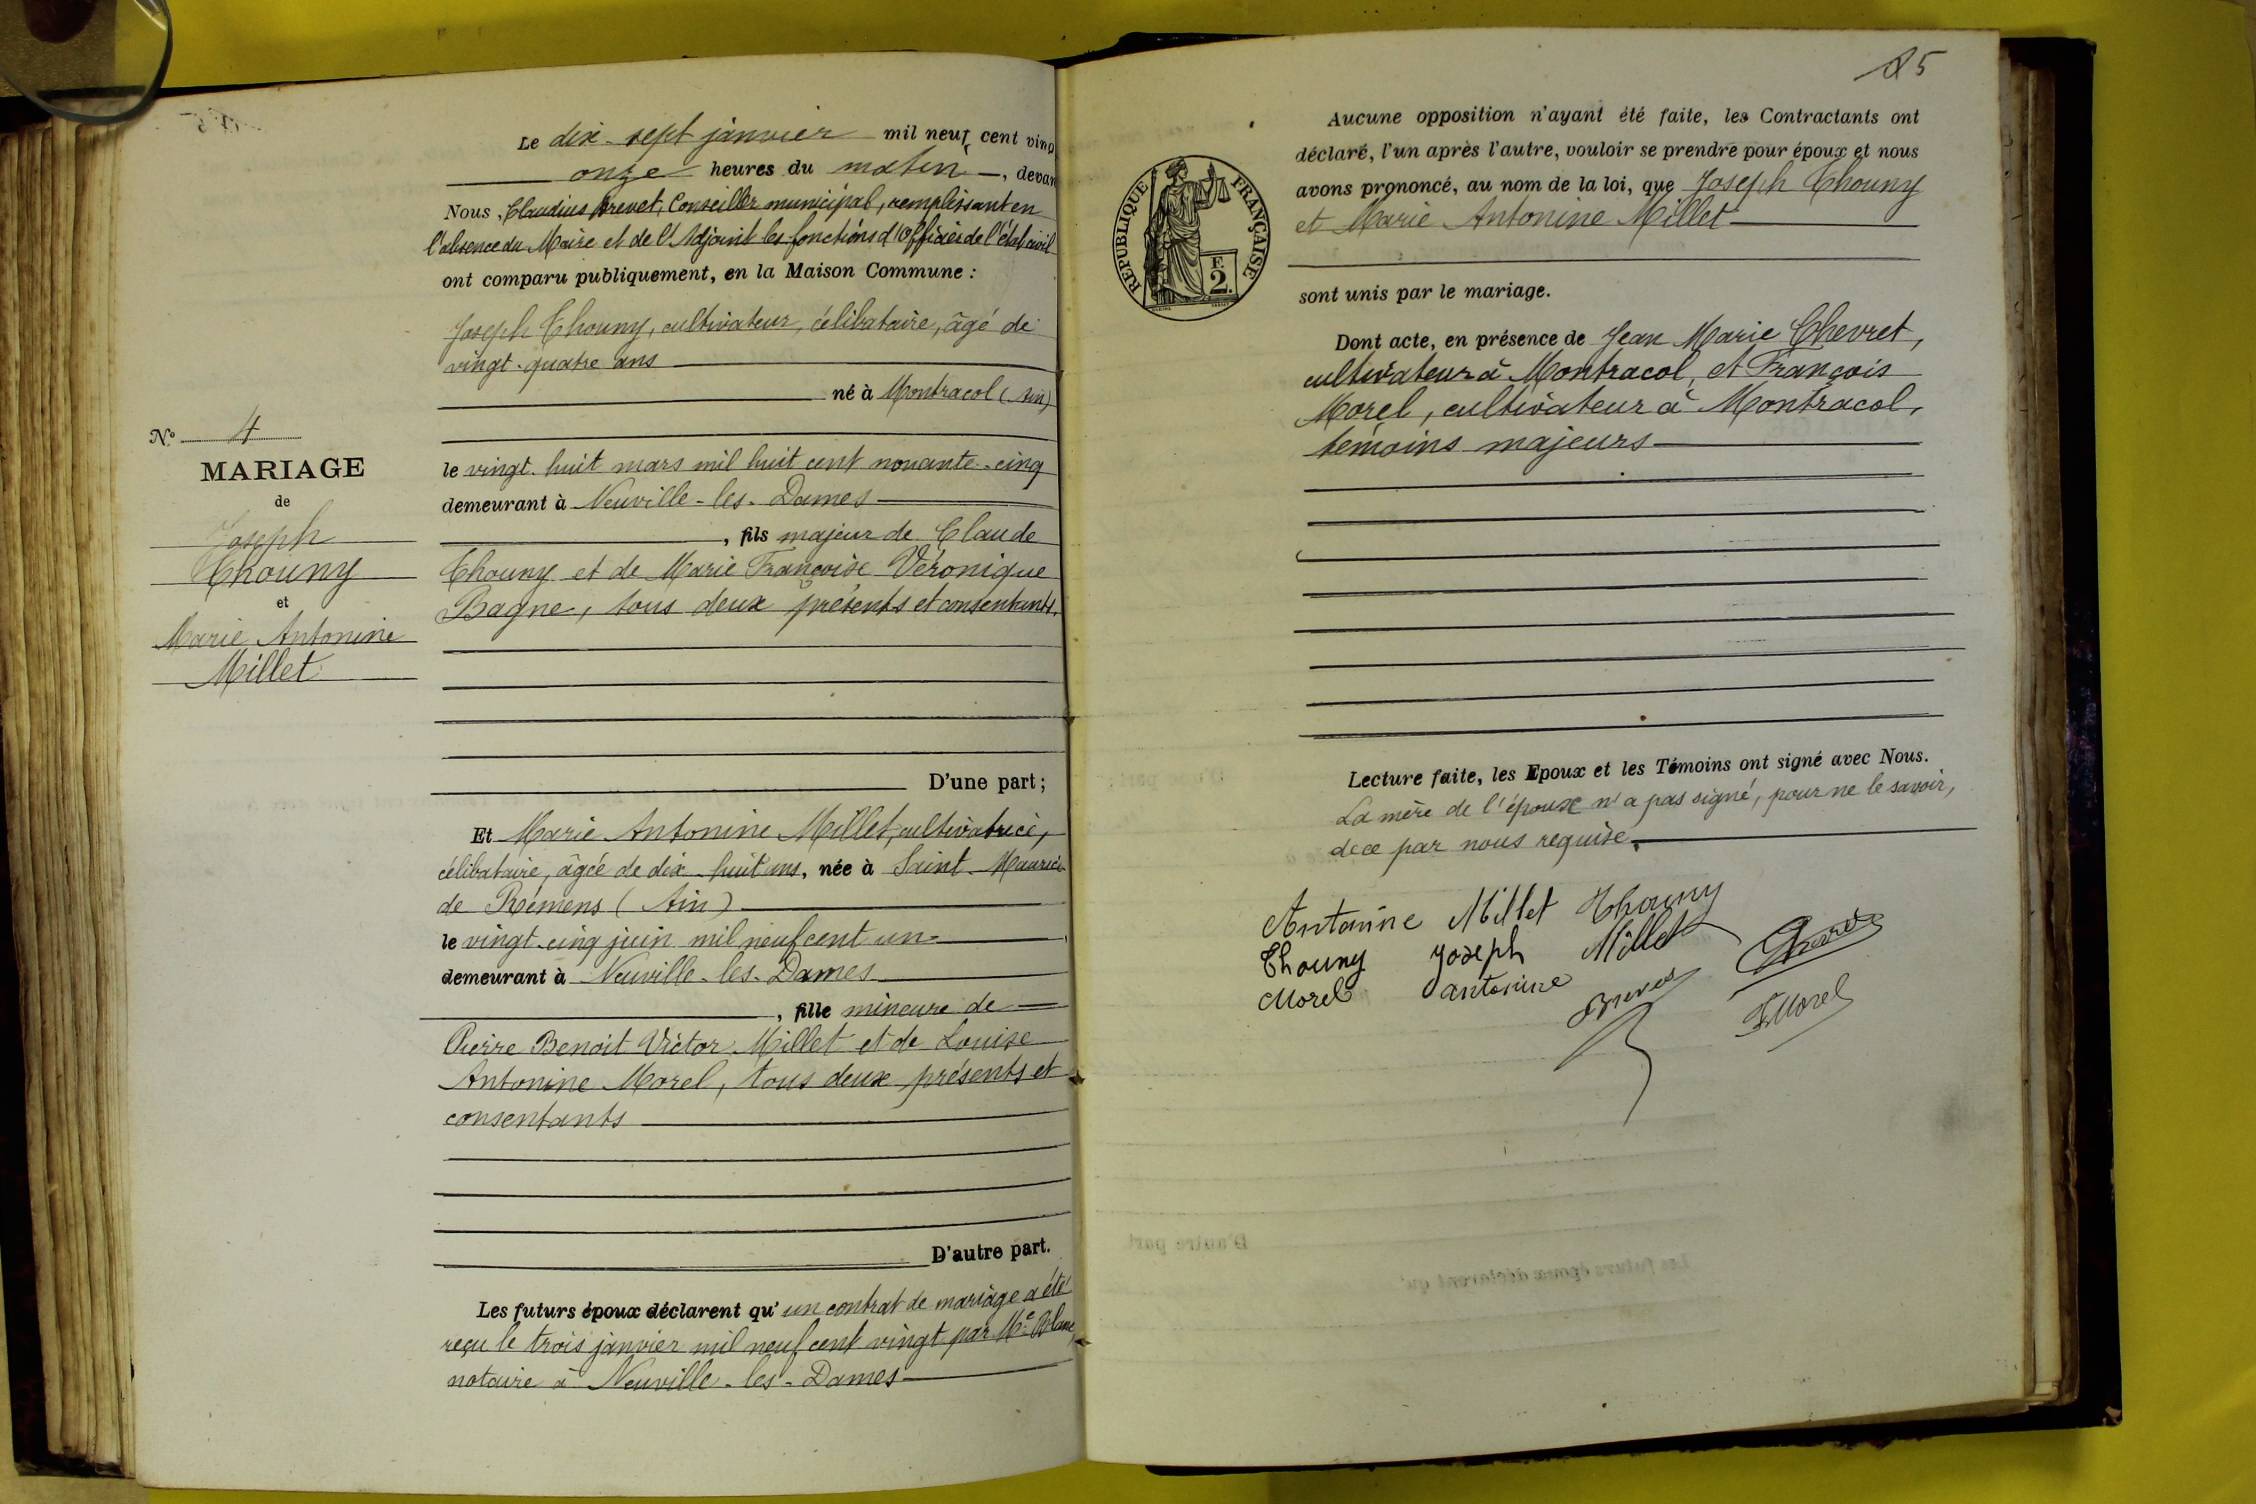 Le dix-sept janvier mil neuf cent ving
onze heures du matin, devan
Nous, Claudius Brevet, Conseiller municipal, remplissant en
l'absence du Maire et de l'Adjoint les fonctions d'Officier de l'état civil
ont comparu publiquement, en la Maison Commune :
Joseph Chouny, cultivateur, célibataire, âgé de
vingt-quatre ans
né à Montracol (Ain)
N° 4
MARIAGE
de
Joseph
Chouny
et
Marie Antonine
Millet
le vingt-huit mars mil huit cent nonante-cinq
demeurant à Neuville-les-Dames
, fils majeur de Claude
Chouny et de Marie Françoise Véronique
Bagne, tous deux présents et consentants.
D'une part ;
Et Marie Antonine Millet, cultivatrice,
célibataire, âgée de dix-huit ans, née à Saint-Maurice-
de Rémens (Ain)
le vingt-cinq juin mil neuf cent un
demeurant à Neuville-les-Dames
, fille mineure de
Pierre Benoit Victor Millet et de Louise
Antonine Morel, tous deux présents et
consentants
D'autre part.
Les futurs époux déclarent qu'un contrat de mariage a été
reçu le trois janvier mil neuf cent vingt par Me Blanc,
notaire à Neuville-les-Dames
85
Aucune opposition n'ayant été faite, les Contractants ont
déclaré, l'un après l'autre, vouloir se prendre pour époux et nous
avons prononcé, au nom de la loi, que Joseph Chouny
et Marie Antonine Millet
sont unis par le mariage.
RÉPUBLIQUE FRANÇAISE
F.
2.
Dont acte, en présence de Jean Marie Chevret,
cultivateur à Montracol, et François
Morel, cultivateur à Montracol,
témoins majeurs
Lecture faite, les Epoux et les Témoins ont signé avec Nous.
La mère de l'époux n'a pas signé, pour ne le savoir,
de ce par nous requise.
Antonine Millet Chouny
Chouny Joseph Millet
Morel Antonine
Brevet
F. Morel